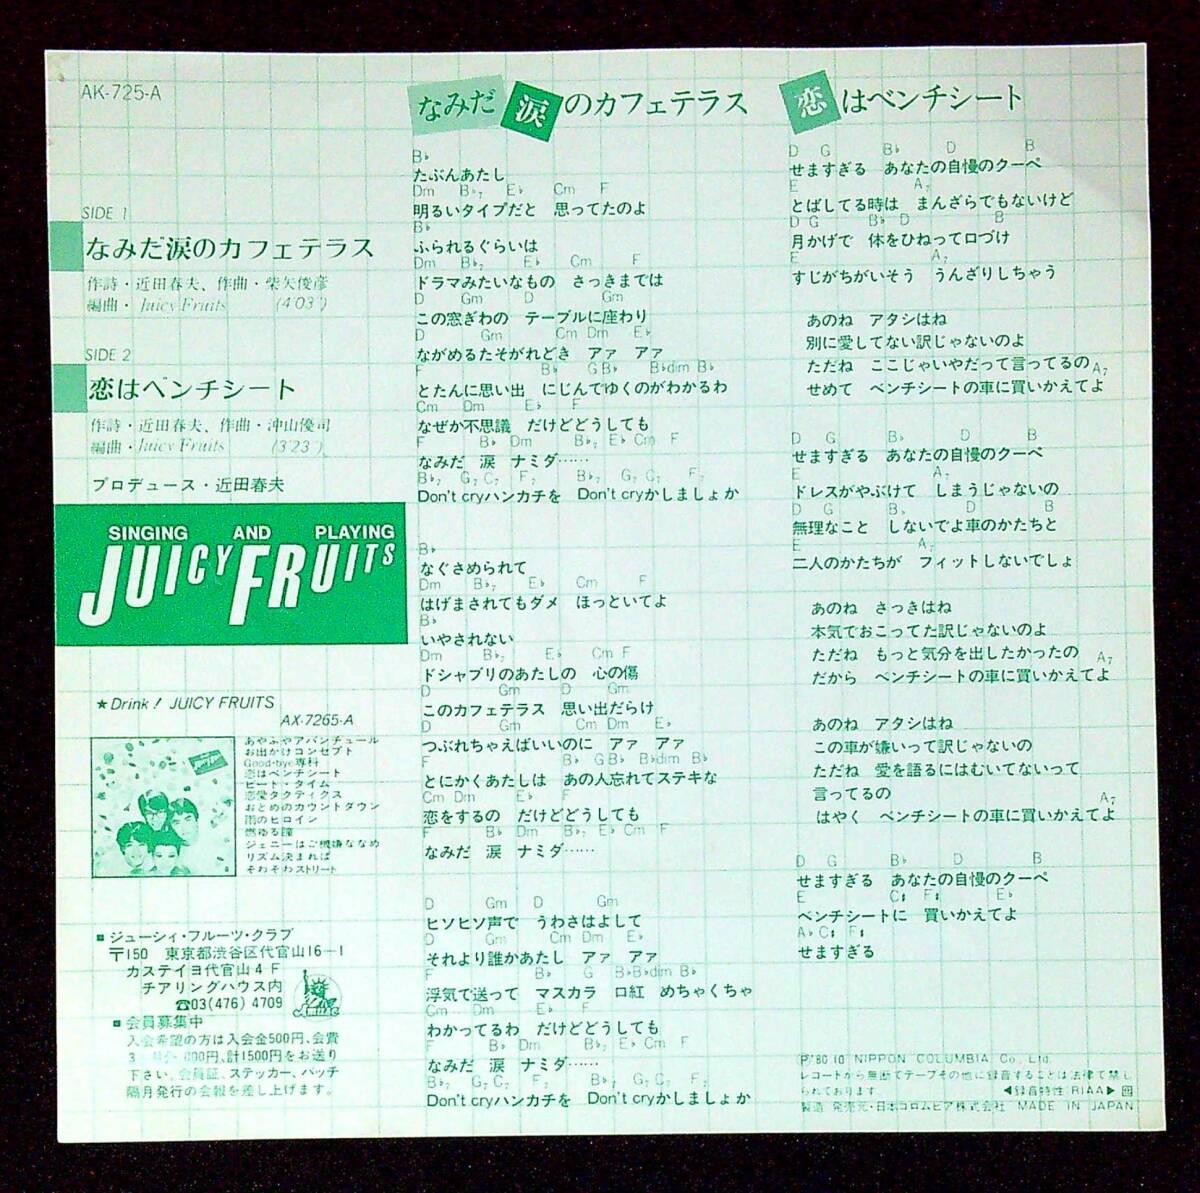 AK-725-A
SIDE 1
なみだ涙のカフェテラス
作詩・近田春夫、作曲・柴矢俊彦
編曲・Juicy Fruits (4'03")
SIDE 2
恋はベンチシート
作詩・近田春夫、作曲・沖山優司
編曲・Juicy Fruits (3'23")
プロデュース・近田春夫
SINGING AND PLAYING
JUICY FRUITS
★Drink! JUICY FRUITS
AX-7265-A
あやふやアバンチュール
お出かけコンセプト
Good-bye専科
恋はベンチシート
ビート・タイム
恋愛タクティクス
おとめのカウントダウン
雨のヒロイン
燃ゆる瞳
ジェニーはご機嫌ななめ
リズム決まれば
そわそわストリート
■ジューシィ・フルーツ・クラブ
〒150 東京都渋谷区代官山16-1
カステイヨ代官山4F
チアリングハウス内
☎03(476)4709
■会員募集中
入会希望の方は入会金500円、会費
円、計1500円をお送り
下さい。会員証、ステッカー、バッチ
隔月発行の会報を差し上げます。
なみだ涙のカフェテラス
B♭
たぶんあたし
Dm B♭7 E♭ Cm F
明るいタイプだと 思ってたのよ
B♭
ふられるぐらいは
Dm B♭7 E♭ Cm F
ドラマみたいなもの さっきまでは
D Gm D Gm
この窓ぎわの テーブルに座わり
D Gm Cm Dm E♭
ながめるたそがれどき アァ アァ
F B♭ G B♭ B♭dim B♭
とたんに思い出 にじんでゆくのがわかるわ
Cm Dm E♭ F
なぜか不思議 だけどどうしても
F B♭ Dm B♭7 E♭ Cm F
なみだ 涙 ナミダ……
B♭7 G7 C7 F7 B♭7 G7 C7 F7
Don't cryハンカチを Don't cryかしましょか
B♭
なぐさめられて
Dm B♭7 E♭ Cm F
はげまされてもダメ ほっといてよ
B♭
いやされない
Dm B♭7 E♭ Cm F
ドシャブリのあたしの 心の傷
D Gm D Gm
このカフェテラス 思い出だらけ
D Gm Cm Dm E♭
つぶれちゃえばいいのに アァ アァ
F B♭ G B♭ B♭dim B♭
とにかくあたしは あの人忘れてステキな
Cm Dm E♭ F
恋をするの だけどどうしても
F B♭ Dm B♭7 E♭ Cm F
なみだ 涙 ナミダ……
D Gm D Gm
ヒソヒソ声で うわさはよして
D Gm Cm Dm E♭
それより誰かあたし アァ アァ
F B♭ G B♭ B♭dim B♭
浮気で送って マスカラ 口紅 めちゃくちゃ
Cm Dm E♭ F
わかってるわ だけどどうしても
F B♭ Dm B♭7 E♭ Cm F
なみだ 涙 ナミダ……
B♭7 G7 C7 F7 B♭7 G7 C7 F7
Don't cryハンカチを Don't cryかしましょか
恋はベンチシート
D G B♭ D B
せますぎる あなたの自慢のクーペ
E A7
とばしてる時は まんざらでもないけど
D G B♭ D B
月かげで 体をひねって口づけ
E A7
すじがちがいそう うんざりしちゃう
あのね アタシはね
別に愛してない訳じゃないのよ
ただね ここじゃいやだって言ってるの
A7
せめて ベンチシートの車に買いかえてよ
D G B♭ D B
せますぎる あなたの自慢のクーペ
E A7
ドレスがやぶけて しまうじゃないの
D G B♭ D B
無理なこと しないでよ車のかたちと
E A7
二人のかたちが フィットしないでしょ
あのね さっきはね
本気でおこってた訳じゃないのよ
ただね もっと気分を出したかったの
A7
だから ベンチシートの車に買いかえてよ
あのね アタシはね
この車が嫌いって訳じゃないの
ただね 愛を語るにはむいてないって
言ってるの
A7
はやく ベンチシートの車に買いかえてよ
D G B♭ D B
せますぎる あなたの自慢のクーペ
E C♯ F♯ E♭
ベンチシートに 買いかえてよ
A♭ C♯ F♯
せますぎる
Ⓟ'80.10 NIPPON COLUMBIA Co., Ltd.
レコードから無断でテープその他に録音することは法律で禁じ
られております ◀録音特性 RIAA▶
製造 発売元・日本コロムビア株式会社 MADE IN JAPAN